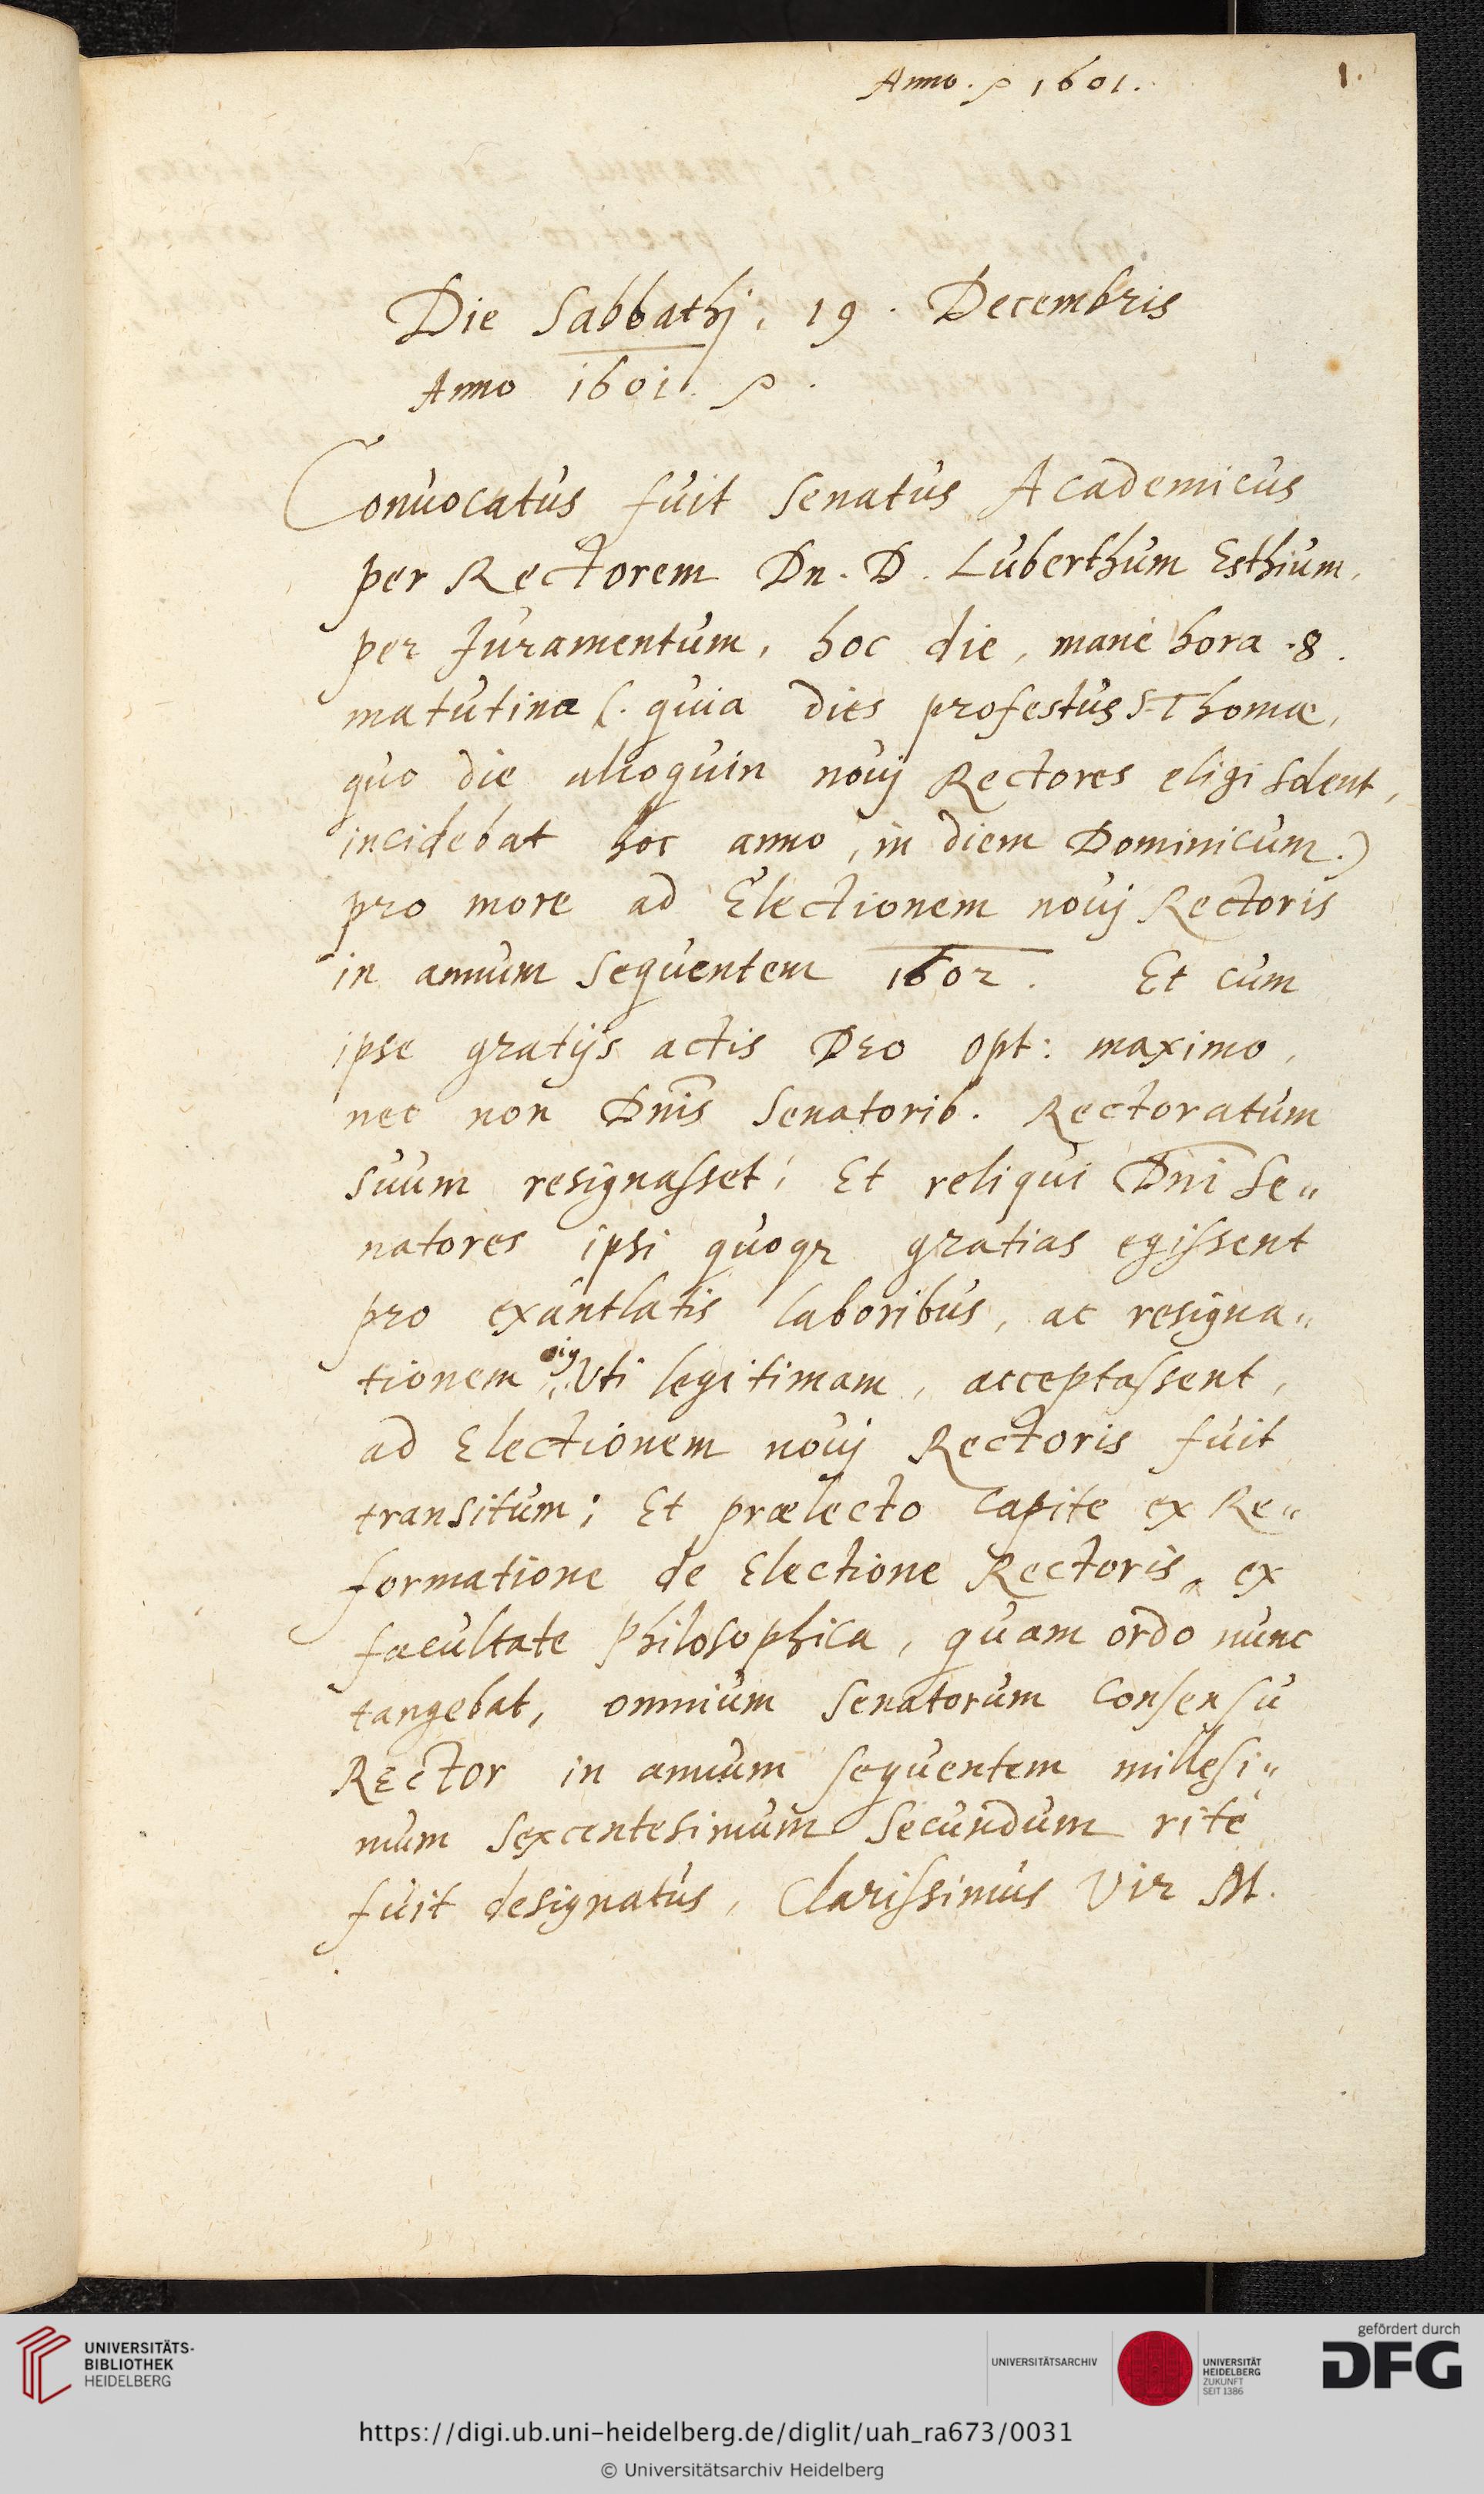 Anno . 1601.
1.
Die Sabbathj, 19. Decembris
Anno 1601.
Conuocatus fuit Senatus Academicus
per Rectorem Dn. D. Luberthum Esthium,
per Juramentum, hoc die, manè hora .8.
matutina (. quia dies profestus S. Thomæ,
quo die alioquin nouj Rectores eligi solent,
incidebat hoc anno, in diem Dominicum.)
pro more ad Electionem nouj Rectoris
in annum sequentem 1602. Et cum
ipse gratijs actis DEO opt: maximo,
nec non Dnis̄ Senatorib. Rectoratum
suum resignasset; Et reliqui Dnī Se„
natores ipsi quoqz gratias egissent
pro exantlatis laboribus, ac resigna„
tionem Vti legitimam, acceptassent,
ad Electionem nouj Rectoris fuit
transitum; Et prælecto Capite ex Re„
formatione de Electione Rectoris, ex
facultate Philosophica, quam ordo nunc
tangebat, omnium Senatorum Consensu
Rector in annum sequentem millesi„
mum sexcentesimum secundum ritè
fuit designatus, Clarissimus Vir M.
UNIVERSITÄTS-
BIBLIOTHEK
HEIDELBERG
UNIVERSITÄTSARCHIV
UNIVERSITÄT
HEIDELBERG
ZUKUNFT
SEIT 1386
gefördert durch
DFG
https://digi.ub.uni-heidelberg.de/diglit/uah_ra673/0031
© Universitätsarchiv Heidelberg